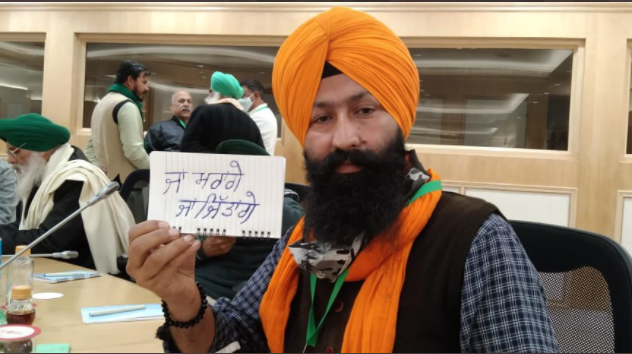 ਜਾ ਮਰਾਂਗੇ
ਜਾ ਜਿੱਤਾਂਗੇ